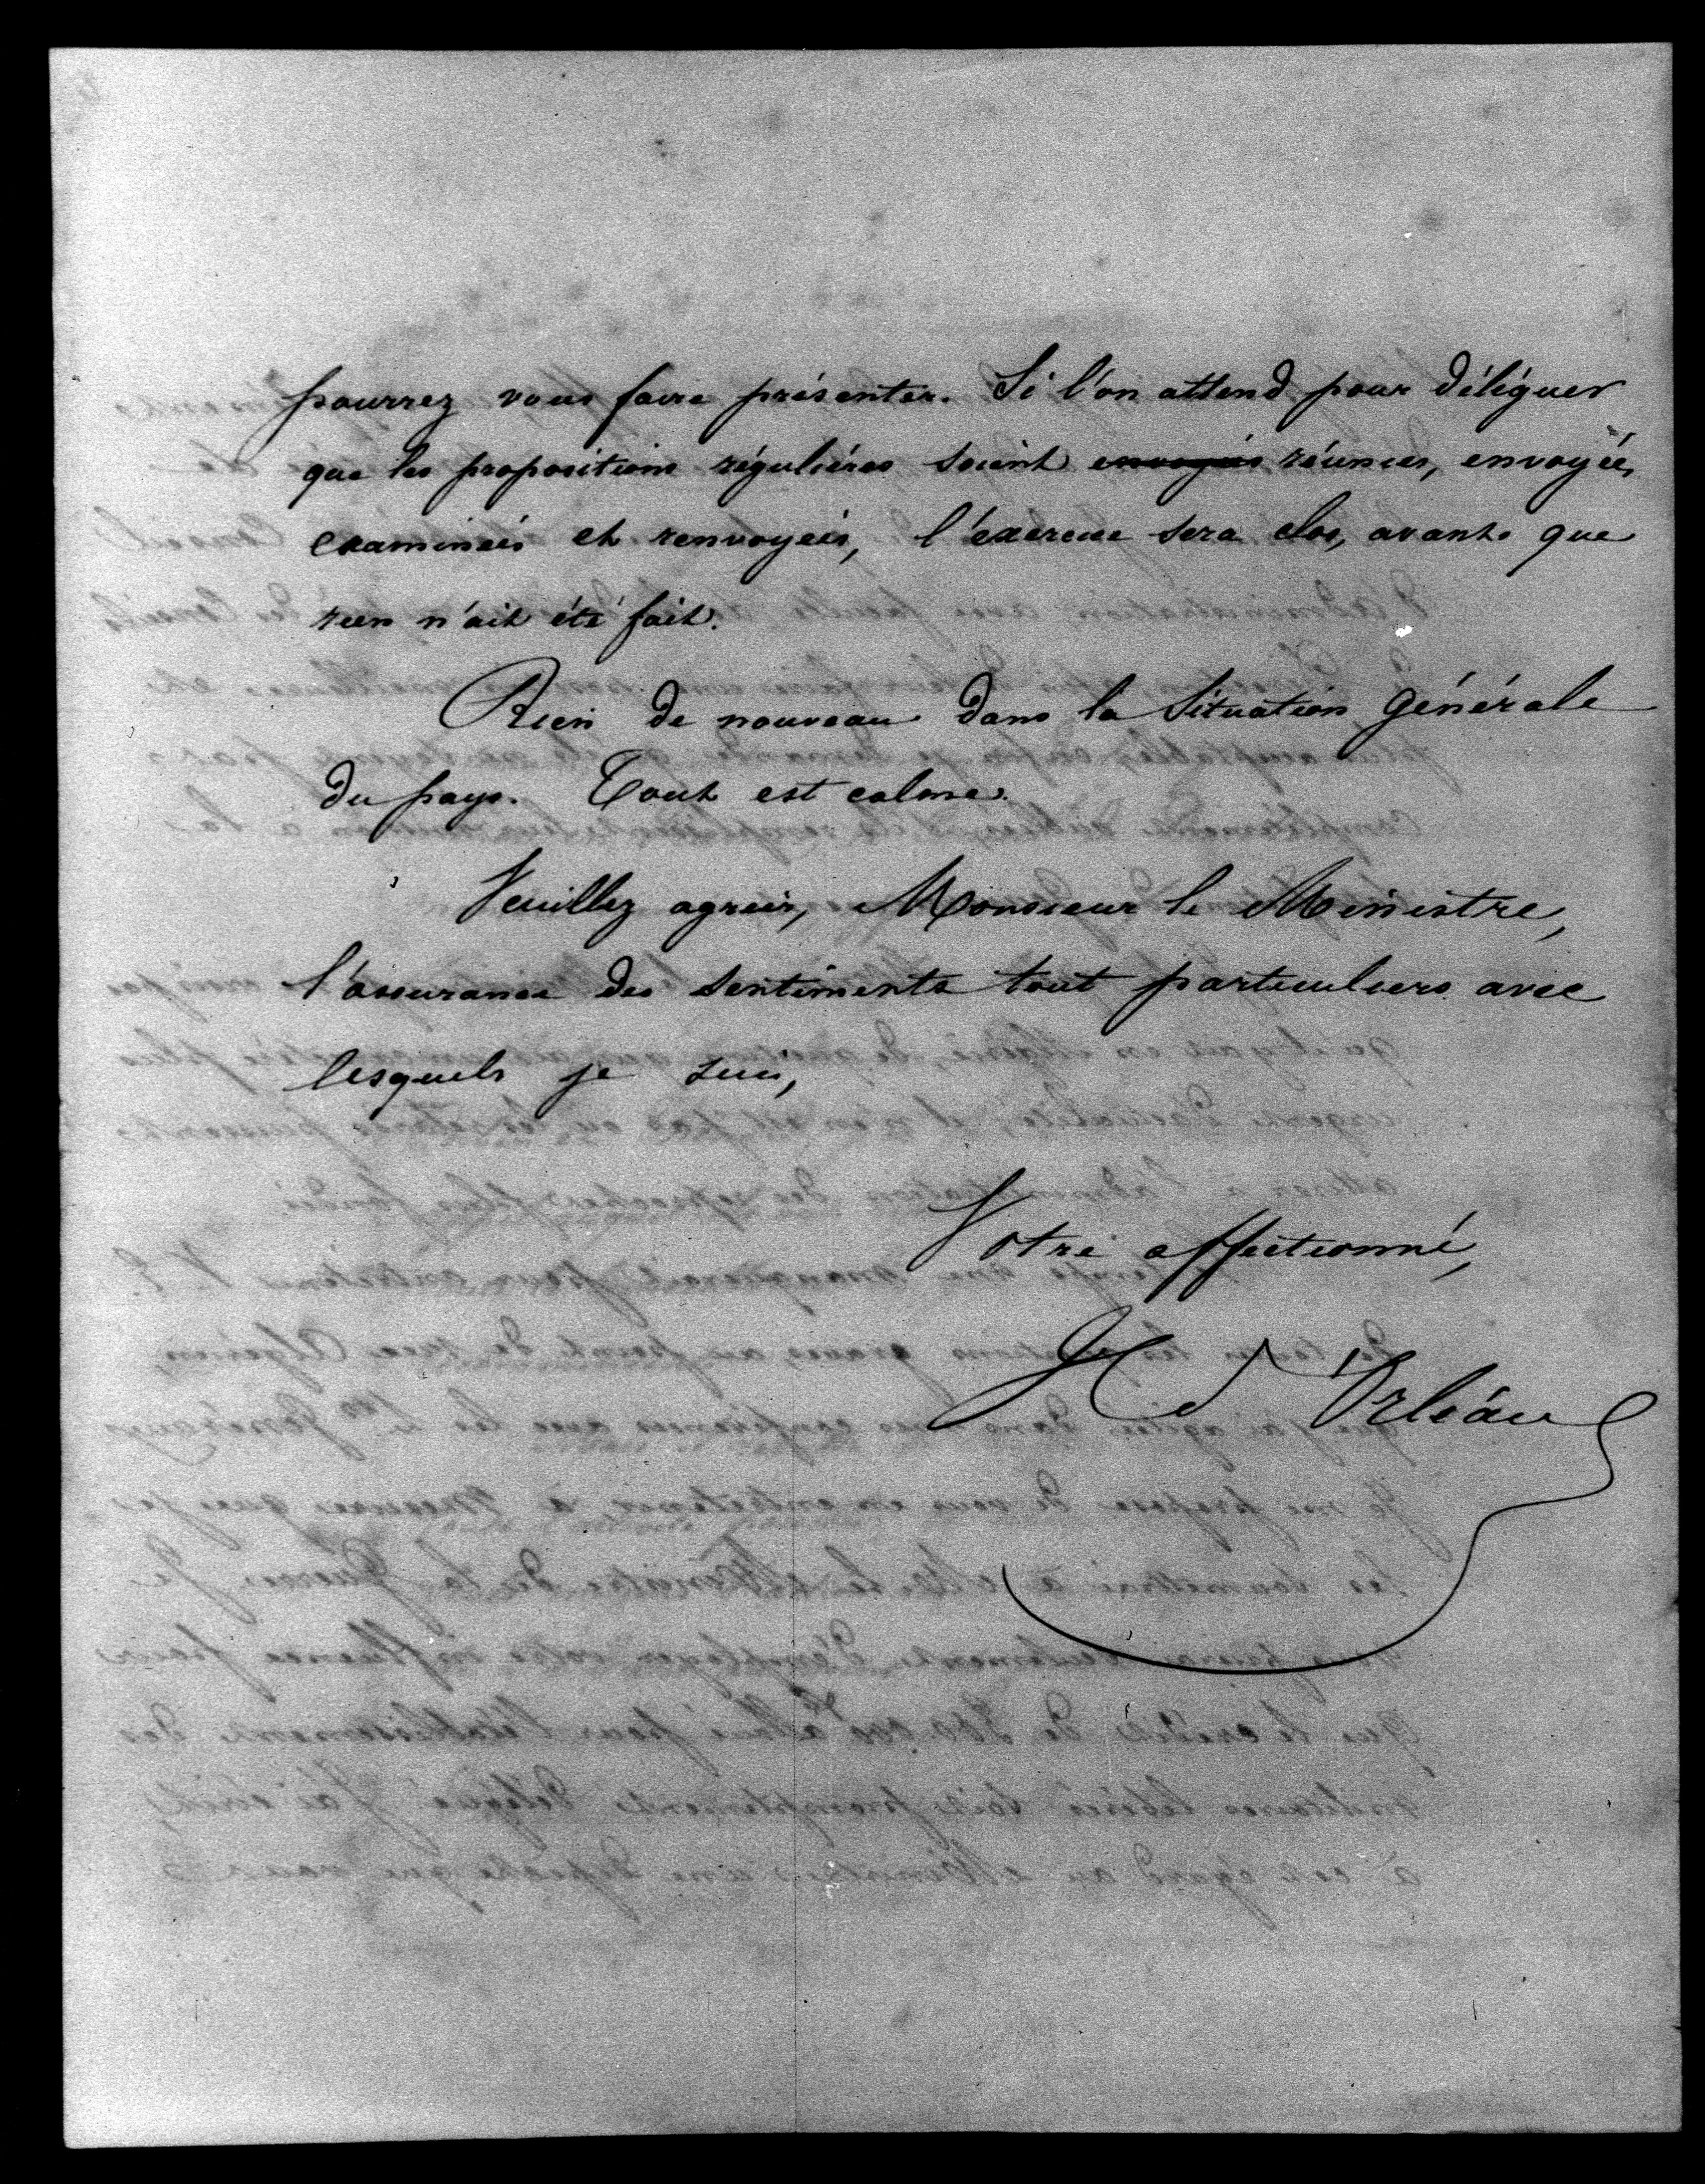 pourrez vous faire présenter. Si l'on attend pour déléguer
que les propositions régulières soient envoyées réunies, envoyées,
examinées et renvoyées, l'exercice sera clos, avant que
rien n'ait été fait.
Rien de nouveau dans la Situation Générale
du pays. Tout est calme.
Veuillez agréer, Monsieur le Ministre,
l'assurance des sentiments tout particuliers avec
lesquels je suis,
Votre affectionné,
H d'Orléans